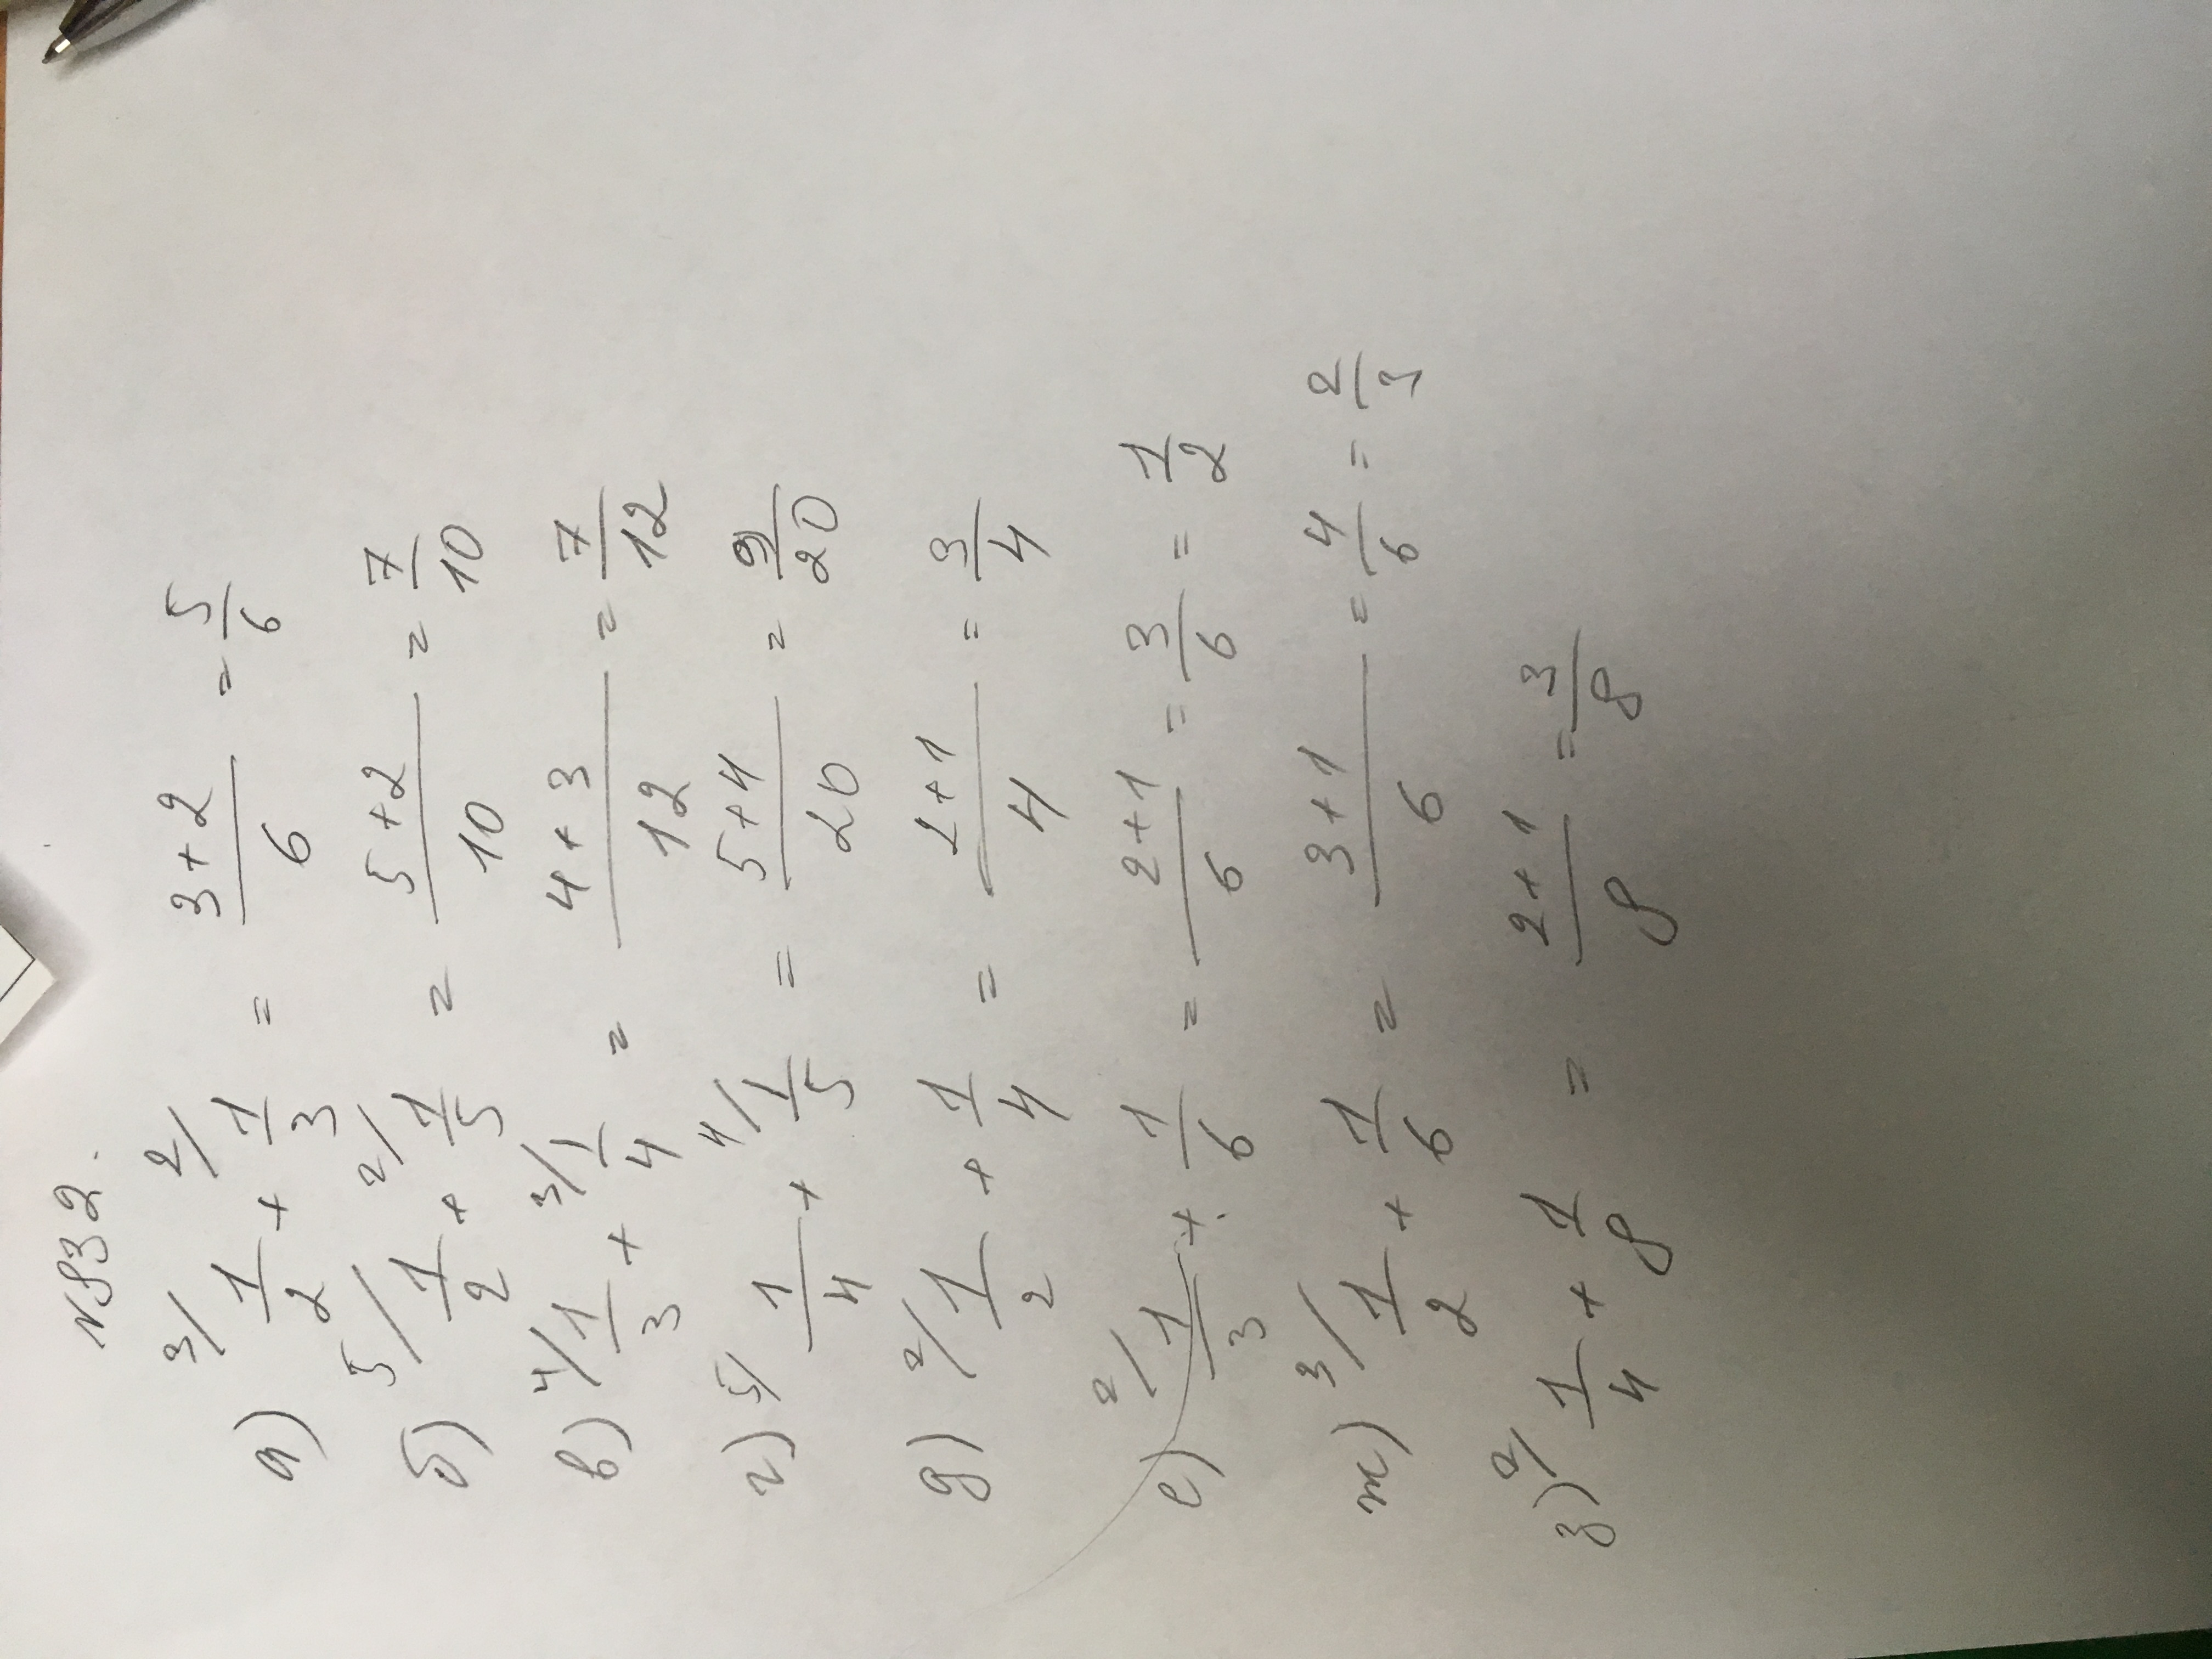 N832.
а) 3/ 1/2 + 2/ 1/3 = (3+2)/6 = 5/6
б) 5/ 1/2 + 2/ 1/5 = (5+2)/10 = 7/10
в) 4/ 1/3 + 3/ 1/4 = (4+3)/12 = 7/12
г) 5/ 1/4 + 4/ 1/5 = (5+4)/20 = 9/20
д) 2/ 1/2 + 1/4 = (2+1)/4 = 3/4
е) 2/ 1/3 + 1/6 = (2+1)/6 = 3/6 = 1/2
ж) 3/ 1/2 + 1/6 = (3+1)/6 = 4/6 = 2/3
з) 2/ 1/4 + 1/8 = (2+1)/8 = 3/8